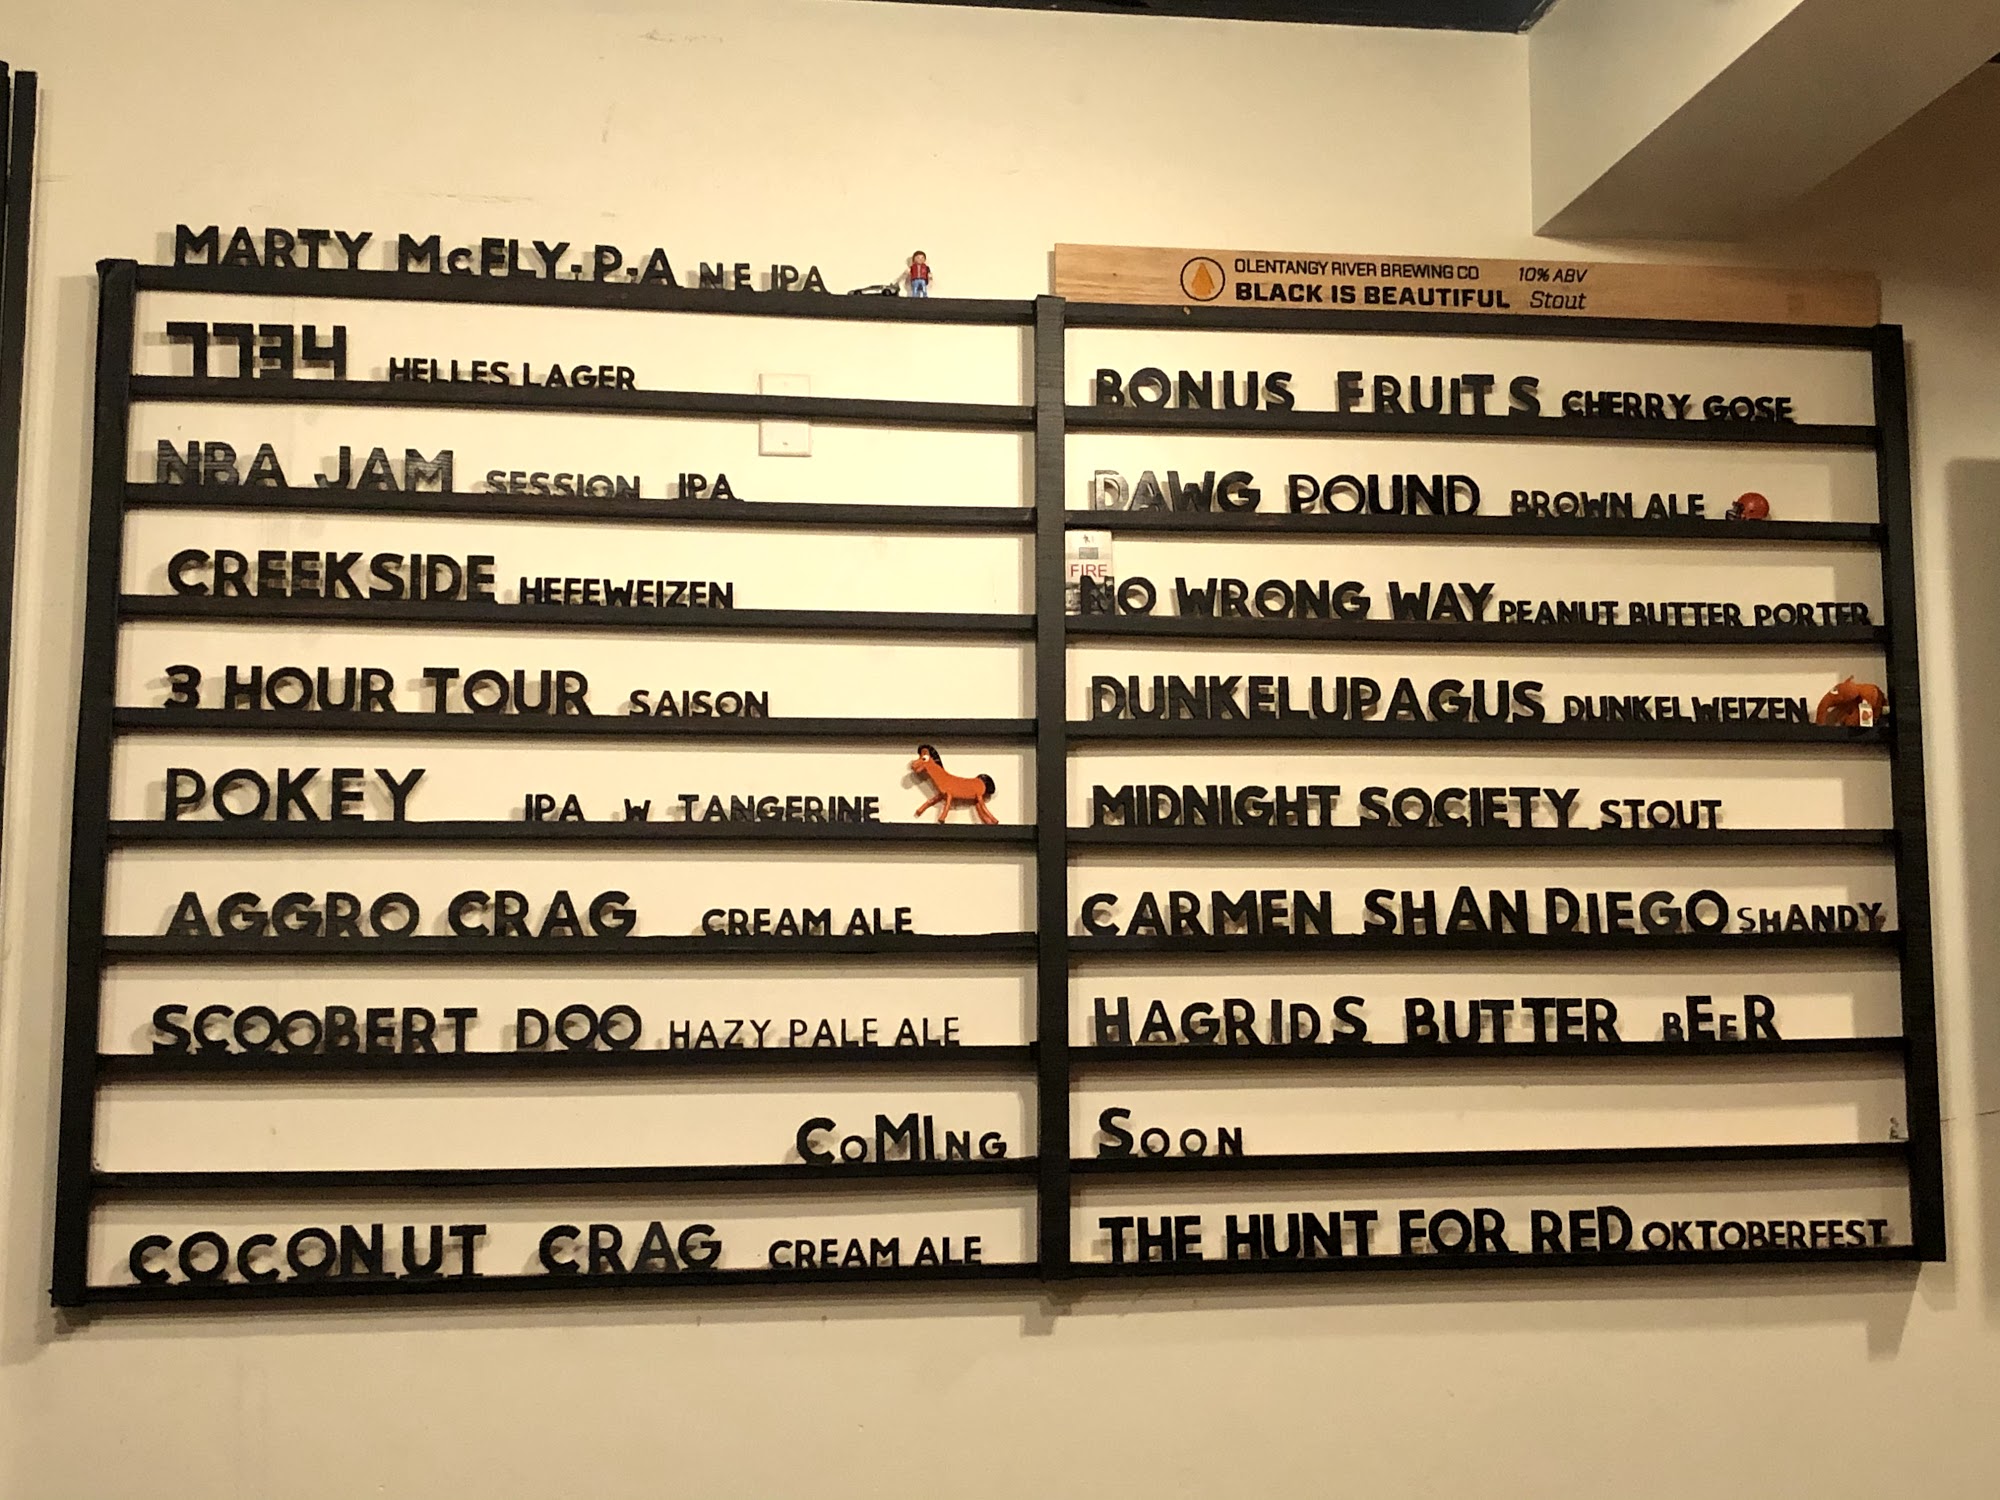 MARTY McFLY-P-A NE IPA
7734 HELLES LAGER
NBA JAM SESSION IPA
CREEKSIDE HEFEWEIZEN
3 HOUR TOUR SAISON
POKEY IPA W TANGERINE
AGGRO CRAG CREAM ALE
SCOOBERT DOO HAZY PALE ALE
CoMINg
COCONUT CRAG CREAM ALE
OLENTANGY RIVER BREWING CO 10% ABV
BLACK IS BEAUTIFUL Stout
BONUS FRUITS CHERRY GOSE
DAWG POUND BROWN ALE
FIRE
NO WRONG WAY PEANUT BUTTER PORTER
DUNKELUPAGUS DUNKELWEIZEN
MIDNIGHT SOCIETY STOUT
CARMEN SHANDIEGO SHANDY
HAGRIDS BUTTER BEER
SOON
THE HUNT FOR RED OKTOBERFEST